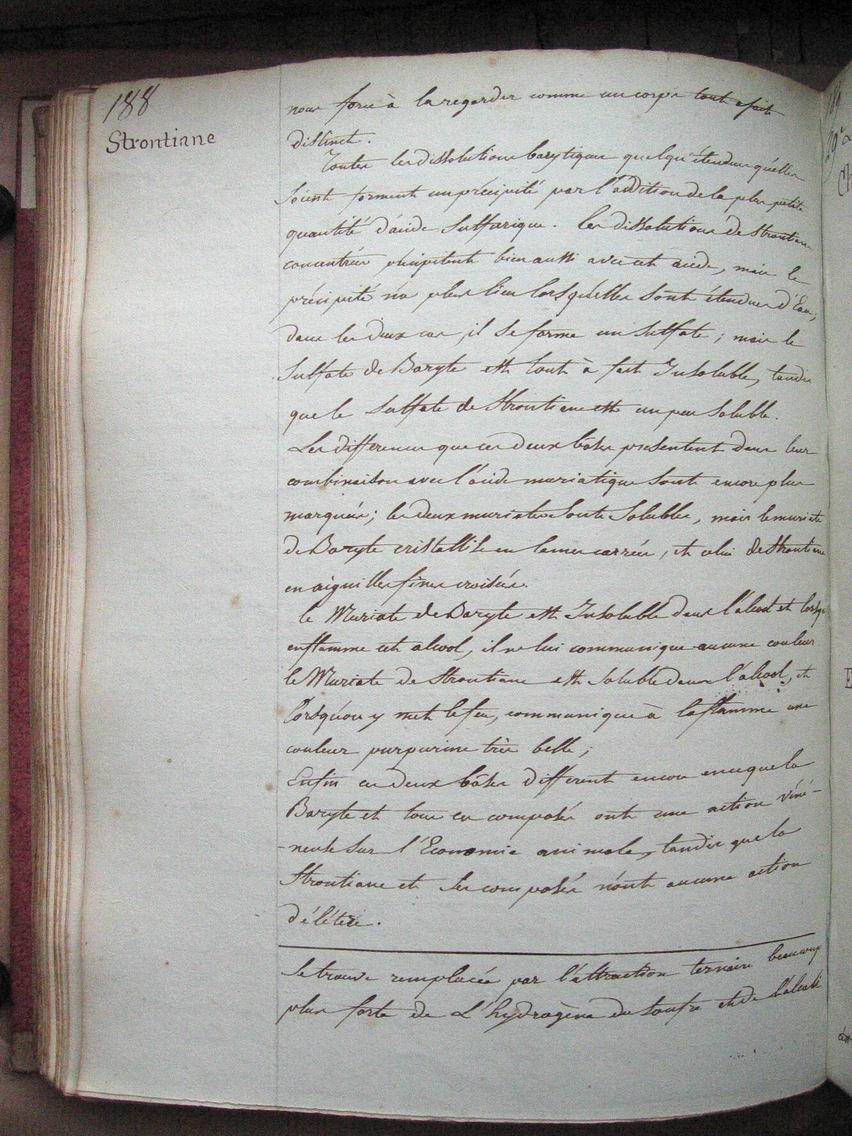 188
Strontiane
nous force à la regarder comme un corps tout a fait
distinct.
Toutes les dissolutions barytiques quelqu'étendues qu'elles
soient forment un précipité par l'addition de la plus petite
quantité d'acide Sulfurique. les dissolutions de Strontiane
concentrées précipitent bien aussi avec cet acide, mais le
précipité n'a plus lieu lorsqu'elles sont étendues d'Eau;
dans les deux cas, il se forme un Sulfate; mais le
Sulfate de Baryte est tout à fait Insoluble, tandis
que le Sulfate de Strontiane est un peu Soluble.
Les differences que ces deux bâses presentent dans leur
combinaison avec l'acide muriatique sont encore plus
marquées; les deux muriates sont Solubles, mais le muriate
de Baryte cristallise en lames carrées, et celui de Strontiane
en aiguilles fines croisées.
le Muriate de Baryte est Insoluble dans l'alcool et lorsqu'
enflamme cet alcool, il ne lui communique aucune couleur
le Muriate de Strontiane est Soluble dans l'alcool, et
lorsqu'on y met le feu, communique à la flamme une
couleur purpurine très belle;
Enfin ces deux bâses different encore en ce que la
Baryte et tous ses composés ont une action véné-
-neuse sur l'Economie animale, tandis que la
Strontiane et ses composés n'ont aucune action
délétère.
se trouve remplacée par l'attraction ternaire beaucoup
plus forte de L'hydrogène du soufre et de l'alcali